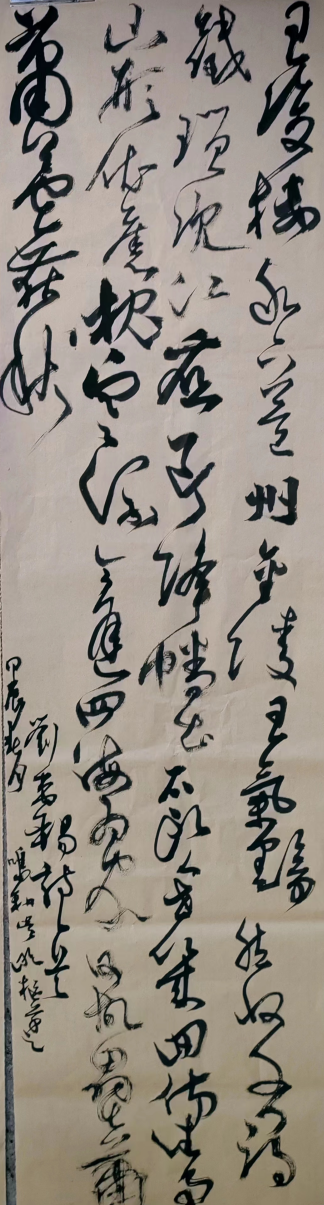 王濬樓船下益州金陵王氣黯然收千尋
鐵鎖沉江底一片降幡出石頭人世幾回傷往事
山形依舊枕寒流今逢四海為家日故壘蕭
蕭蘆荻秋
劉禹錫詩一首
甲辰春月